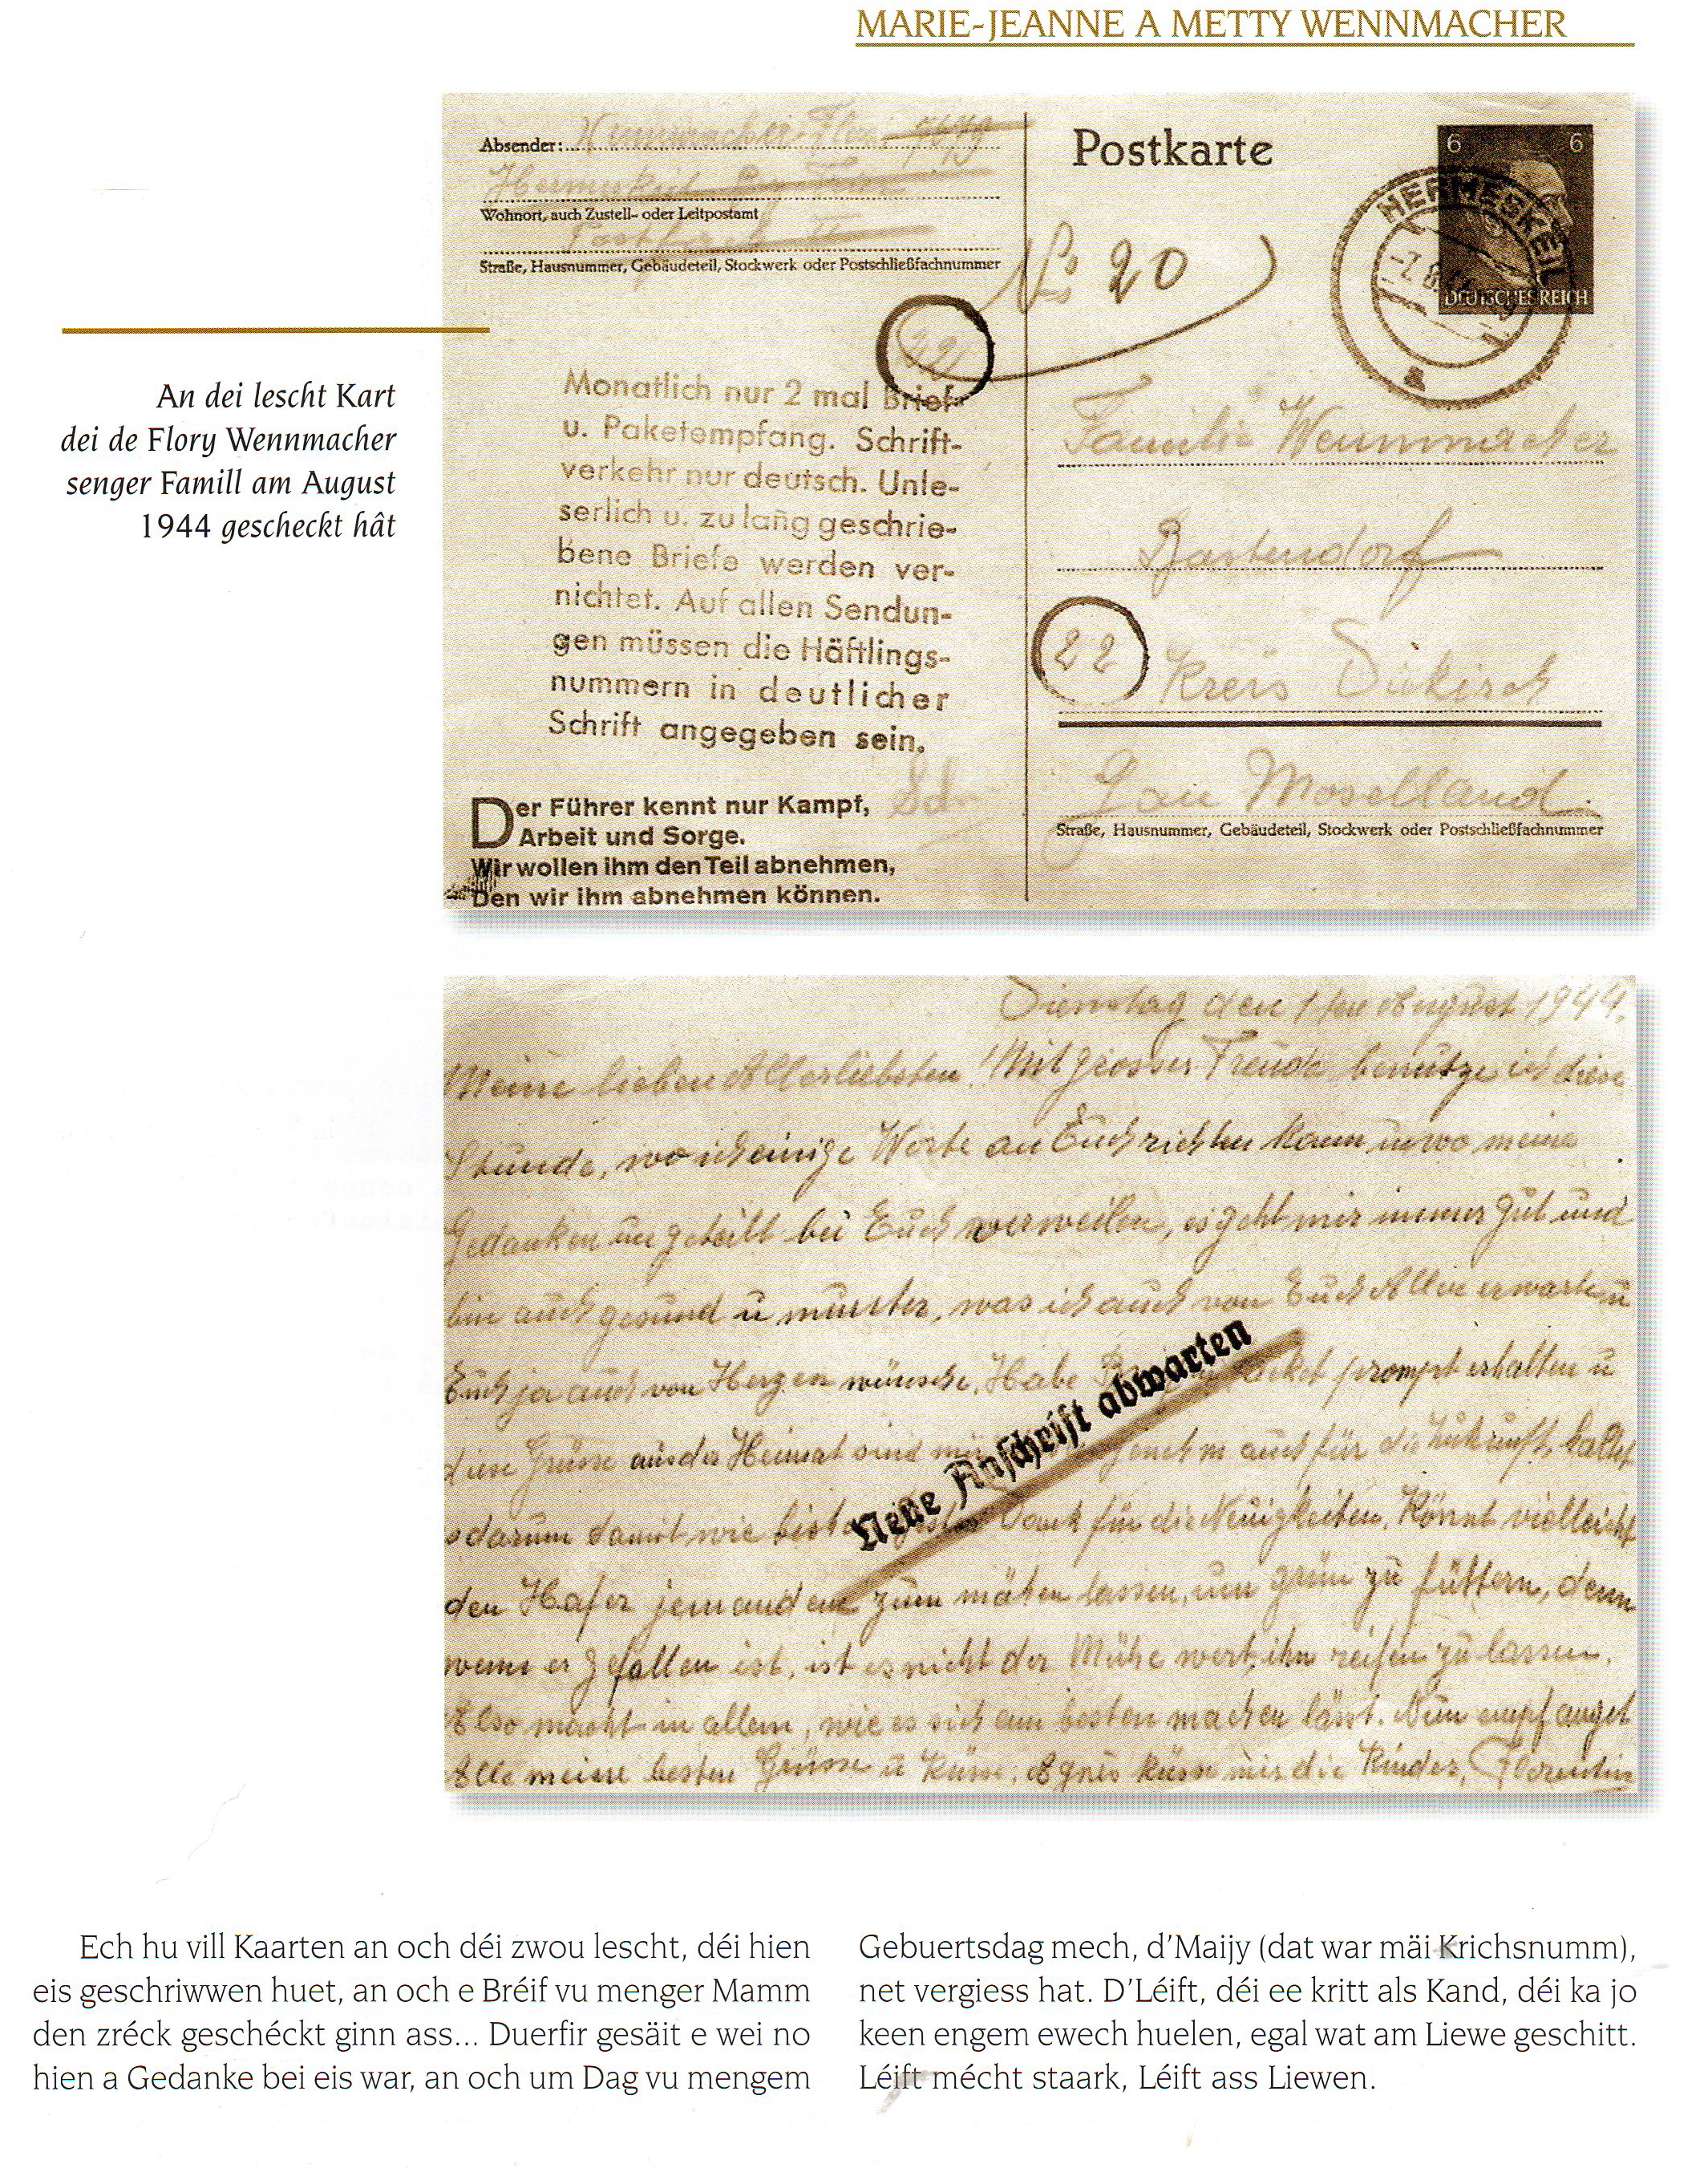 MARIE-JEANNE A METTY WENNMACHER
An dei lescht Kart
dei de Flory Wennmacher
senger Famill am August
1944 gescheckt hât
Absender: Wennmacher Flor.
Hermeskeil Bez Trier
Wohnort, auch Zustell- oder Leitpostamt
Postfach II
Straße, Hausnummer, Gebäudeteil, Stockwerk oder Postschließfachnummer
Monatlich nur 2 mal Brief-
u. Paketempfang. Schrift-
verkehr nur deutsch. Unle-
serlich u. zu lang geschrie-
bene Briefe werden ver-
nichtet. Auf allen Sendun-
gen müssen die Häftlings-
nummern in deutlicher
Schrift angegeben sein.
Der Führer kennt nur Kampf,
Arbeit und Sorge.
Wir wollen ihm den Teil abnehmen,
Den wir ihm abnehmen können.
Postkarte
6 6
HERMESKEIL
DEUTSCHES REICH
a
No 20
Familie Wennmacher
Bastendorf
22
Kreis Diekirch
Gau Moselland
Straße, Hausnummer, Gebäudeteil, Stockwerk oder Postschließfachnummer
Dienstag den 1ten August 1944.
Meine lieben Allerliebsten! Mit grosser Freude benutze ich diese
Stunde, wo ich einige Worte an Euch richten kann u wo meine
Gedanken ungeteilt bei Euch verweilen, es geht mir immer gut und
bin auch gesund u munter, was ich auch von Euch Allen erwarte u
Euch ja auch von Herzen wünsche. Habe prompt erhalten u
diese Grüsse aus der Heimat sind mir auch für die Zukunft, haltet
darum damit wie bisher Dank für die Neuigkeiten. Könnt vielleicht
den Hafer jemandem zum mähen lassen, um grün zu füttern, denn
wenn er gefallen ist, ist es nicht der Mühe wert, ihn reifen zu lassen.
Also macht in allem, wie es sich am besten machen lässt. Nun empfanget
Alle meine besten Grüsse u Küsse. Agnes küsse mir die Kinder, Florentin
Neue Anschrift abwarten
Ech hu vill Kaarten an och déi zwou lescht, déi hien
eis geschriwwen huet, an och e Bréif vu menger Mamm
den zréck geschéckt ginn ass... Duerfir gesäit e wei no
hien a Gedanke bei eis war, an och um Dag vu mengem
Gebuertsdag mech, d'Maijy (dat war mäi Krichsnumm),
net vergiess hat. D'Léift, déi ee kritt als Kand, déi ka jo
keen engem ewech huelen, egal wat am Liewe geschitt.
Léift mécht staark, Léift ass Liewen.